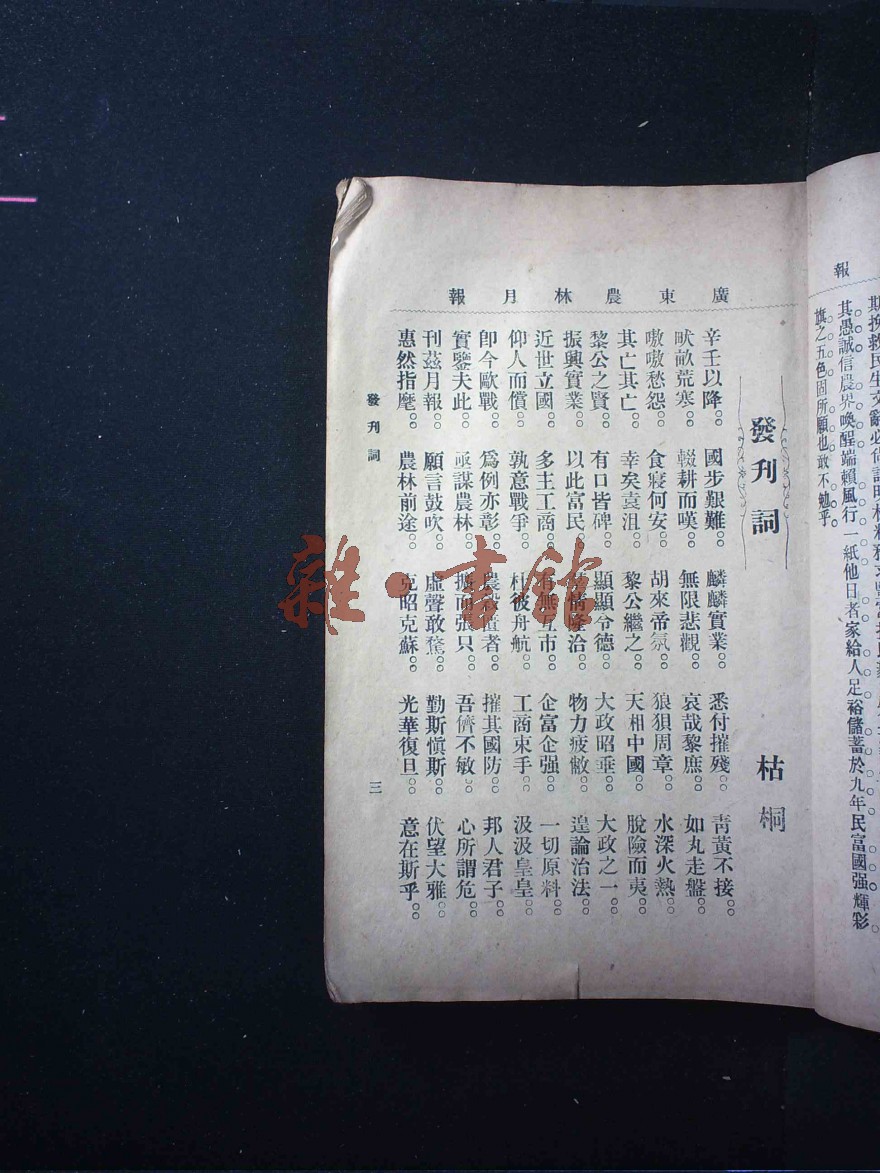 報
期挽救民生文辭必
其愚誠信農界喚醒端賴風行一紙他日者家給人足裕儲蓄於九年民富國强輝彩。
旗之五色固所願也敢不勉乎。
廣東農林月報
發刊詞
枯桐
辛壬以降。國步艱難。麟麟實業。悉付摧殘。青黃不接。
畎畝荒寒。輟耕而嘆。無限悲觀。哀哉黎庶。如丸走盤。
嗷嗷愁怨。食寢何安。胡來帝氛。狼狽周章。水深火熱。
其亡其亡。幸矣袁沮。黎公繼之。天相中國。脫險而夷。
黎公之賢。有口皆碑。顯顯令德。大政昭垂。大政之一。
振興實業。以此富民。情隆洽。物力疲敝。遑論治法。
近世立國。多主工商。有無互市。企富企强。一切原料。
仰人而償。孰意戰爭。杜彼舟航。工商束手。汲汲皇皇。
卽今歐戰。爲例亦彰。農穀匱者。摧其國防。邦人君子。
實鑒夫此。亟謀農林。擴而張只。吾儕不敏。心所謂危。
刊茲月報。願言鼓吹。虛聲敢騖。勤斯愼斯。伏望大雅。
惠然指麾。農林前途。克昭克蘇。光華復旦。意在斯乎。
發刊詞
三
雜·書館